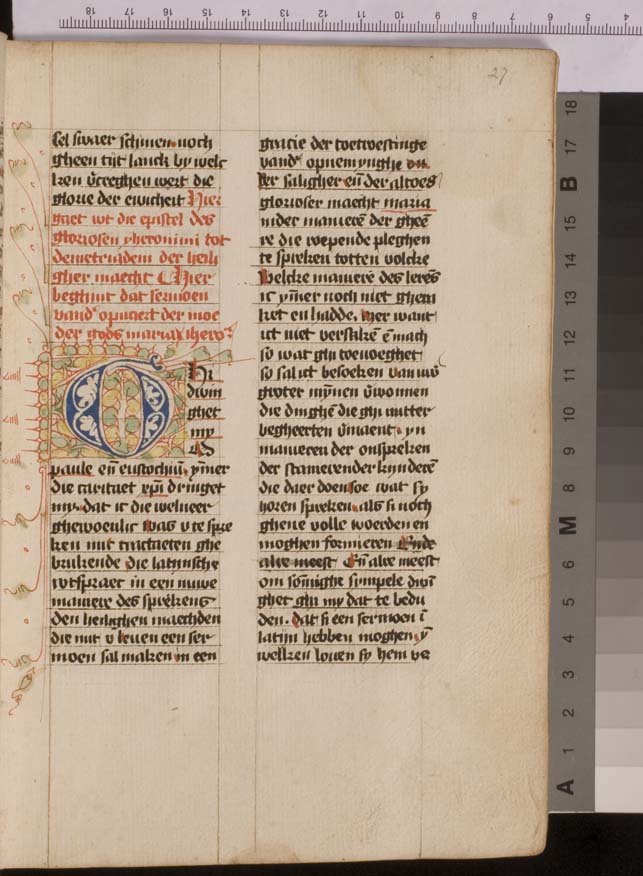 27
sel swaer schinen noch
gheen tijt lanck by welc
ken v̄creghen wert die
glorie der ewicheit Hier
gaet wt die epistel des
gloriosen yheronimi tot
demetriadem der heili
gher maecht Hier
beghint dat sermoen
van opuaert der moe
der gods maria ihero
Hi
dwin
ghet
my
O
paule en̄ eustochiū ymmer
die caritaet xp̄i dringet
my dat ic die welneer
ghewoenlic was v te spre
ken mit tractaeten ghe
brukende die latijnsche
wtspraec in een nuwe
maniere des sprekens
den heilighen maechden
die mit v leuen een ser
moen sal maken in een
gracie der toetvestinge
vand opnemynghe
der saligher en̄ der altoes
glorioser maecht maria
nider manierē der gheē
re die roepende pleghen
te spreken totten volcke
Welcke maniere des lerēs
ic ymmer noch niet ghem
ket en hadde. Mer want
ic v niet versakē ē mach
so wat ghi toevoeghet
so sal ic besoeken van uwē
groter mynnen v̄wonnen
die dinghē die ghi mitter
begheerten v̄maent yn
manieren der onspreken
der stamerender kynderē
die daer doen soe wat sy
horen spreken als si noch
ghene volle woerden en
moghen formieren Ende
alre meest En̄ alre meest
om sōmighe sympele dwī
ghet ghi my dat te bedu
den. dat si een sermoen ī
latijn hebben moghen ȳ
welken louen sy hem ve